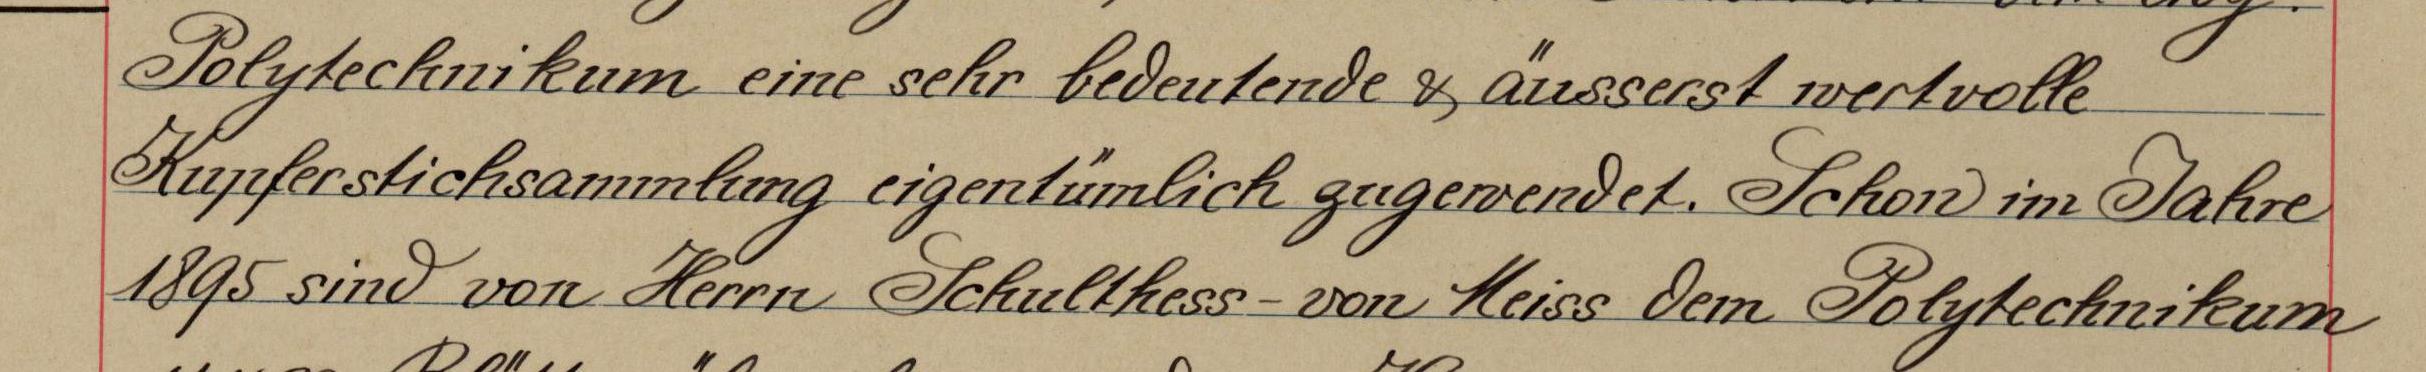 Polytechnikum eine sehr bedeutende & äusserst wertvolle
Kupferstichsammlung eigentümlich zugewendet. Schon im Jahre
1895 sind von Herrn Schulthess-von Meiss dem Polytechnikum